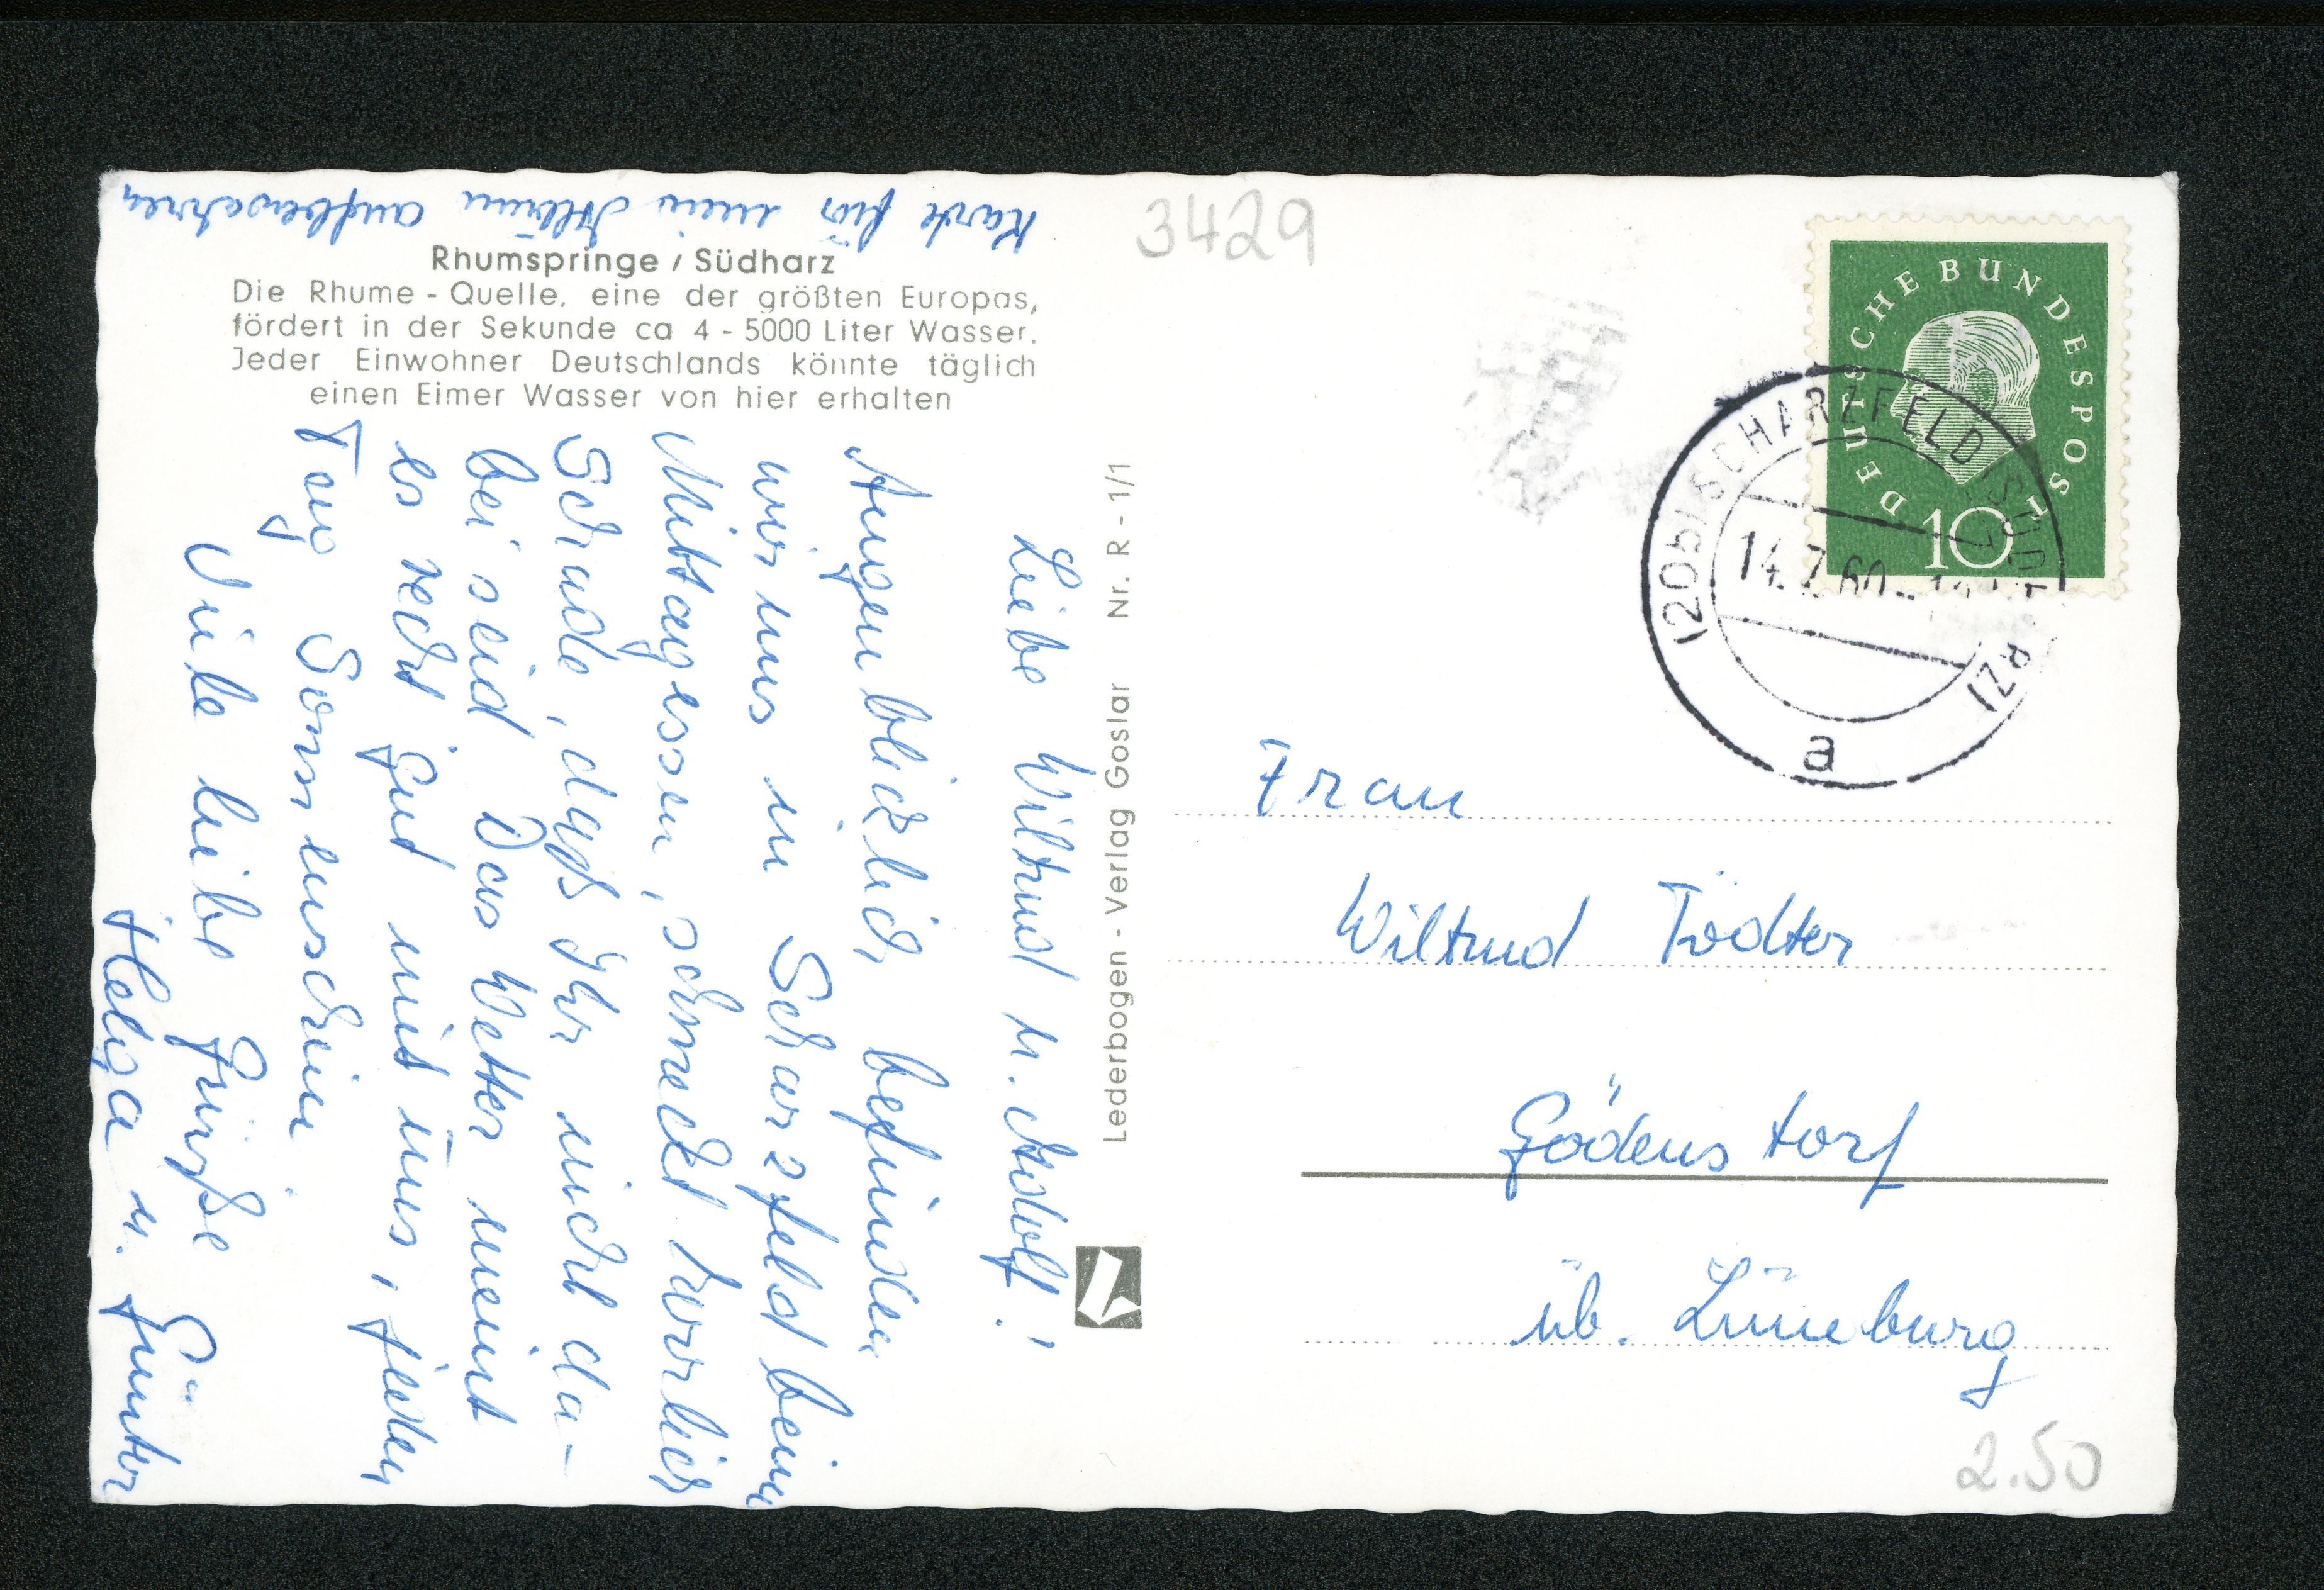 Karte für mein Album aufbewahren
Rhumspringe / Südharz
Die Rhume - Quelle, eine der größten Europas,
fördert in der Sekunde ca 4 - 5000 Liter Wasser.
Jeder Einwohner Deutschlands könnte täglich
einen Eimer Wasser von hier erhalten
Liebe Wiltrud u. Adolf!
Augenblicklich befinden
wir uns in Scharzfeld beim
Mittagessen, schmeckt herrlich
Schade, daß Ihr nicht da-
bei seid Das Wetter meint
es recht gut mit uns, jeden
Tag Sonnenschein
Viele liebe Grüße
Helga u. Günter
Lederbogen - Verlag Goslar Nr. R - 1/1
3429
DEUTSCHE BUNDESPOST
10
(20b) SCHARZFELD (SÜDHARZ)
14.7.60
a
Frau
Wiltrud Tödter
Gödenstorf
üb. Lüneburg
2.50